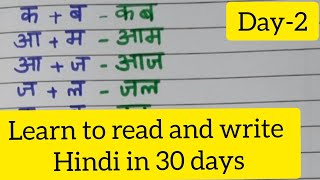 क + ब - कब
आ + म - आम
आ + ज - आज
ज + ल - जल
Day-2
Learn to read and write
Hindi in 30 days